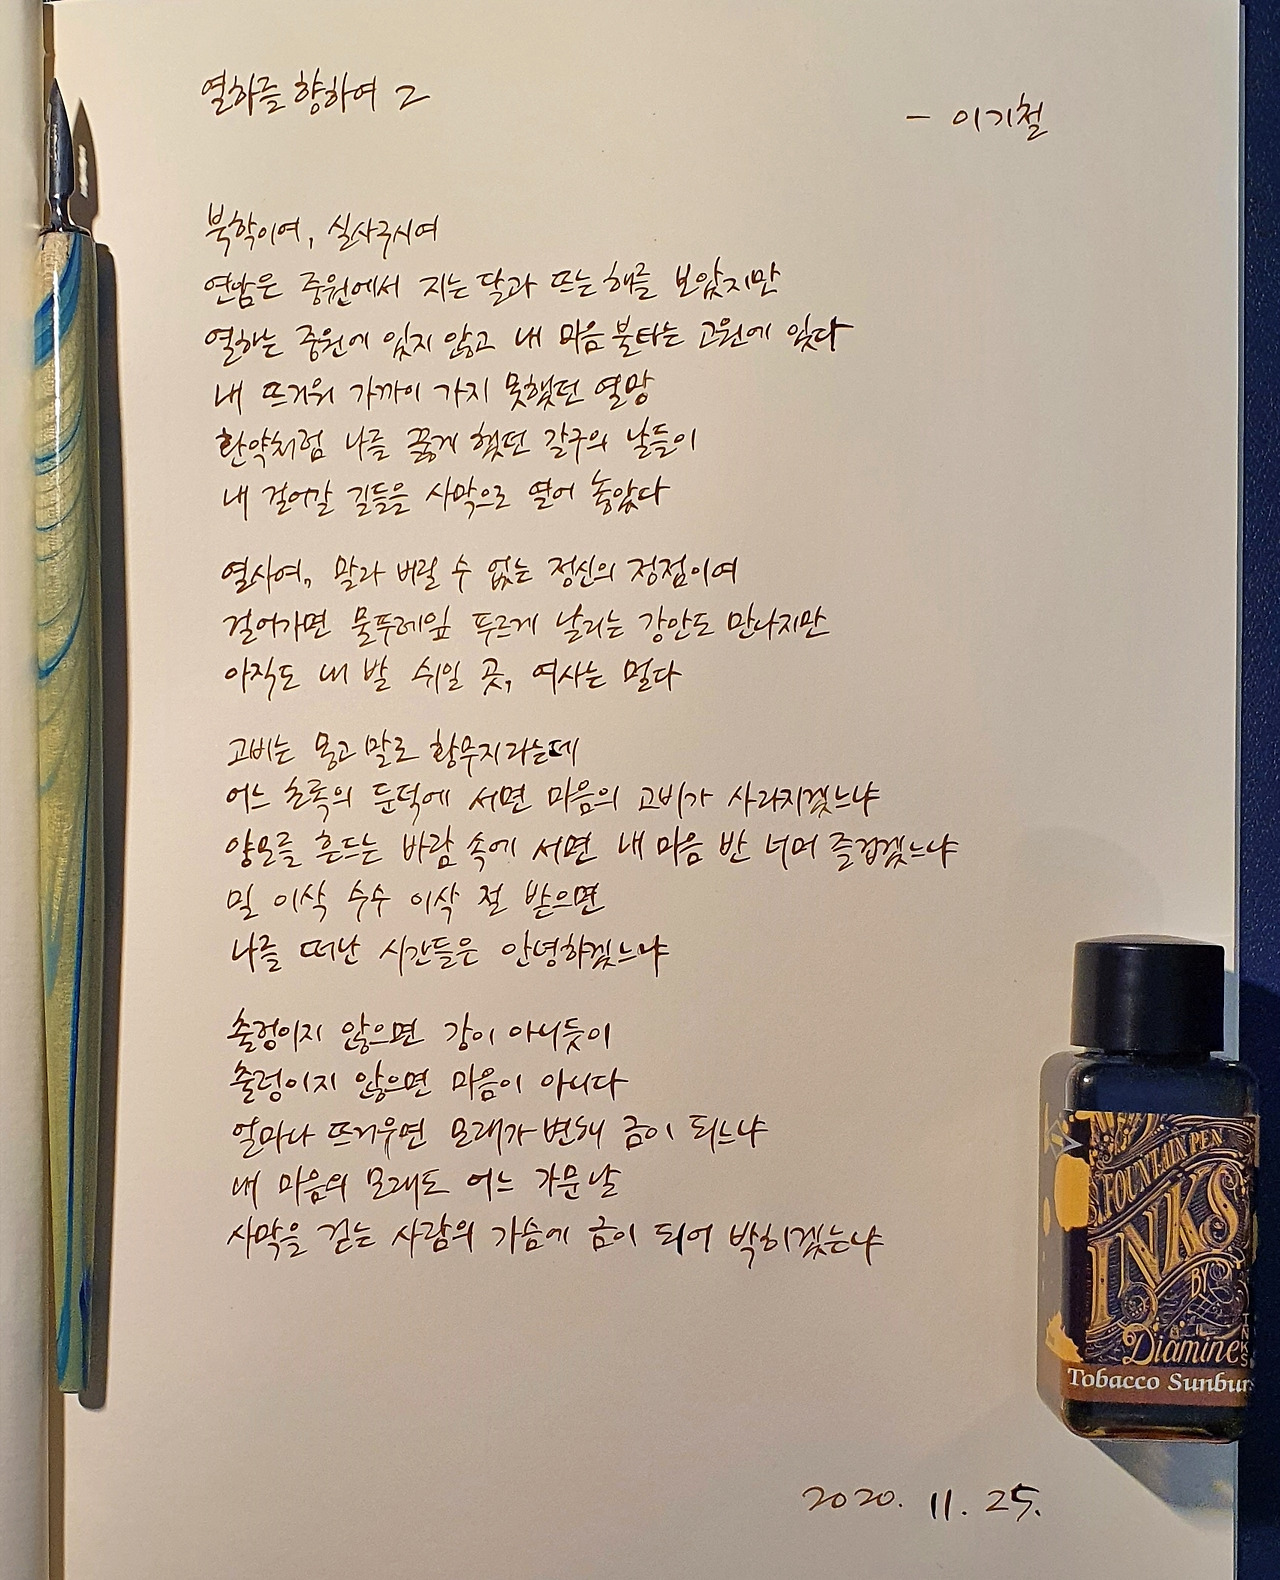 열하를 향하여 2
- 이기철
북학이여, 실사구시여
연암은 중원에서 지는 달과 뜨는 해를 보았지만
열하는 중원에 있지 않고 내 마음 불타는 고원에 있다
내 뜨거워 가까이 가지 못했던 열망
한약처럼 나를 끓게 했던 갈구의 날들이
내 걸어갈 길들을 사막으로 열어 놓았다
열사여, 말라 버릴 수 없는 정신의 정점이여
걸어가면 물푸레잎 푸르게 날리는 강안도 만나지만
아직도 내 발 쉬일 곳, 여사는 멀다
고비는 몽고 말로 황무지라는데
어느 초록의 둔덕에 서면 마음의 고비가 사라지겠느냐
양모를 흔드는 바람 속에 서면 내 마음 반 너머 즐겁겠느냐
밀 이삭 수수 이삭 절 받으면
나를 떠난 시간들은 안녕하겠느냐
출렁이지 않으면 강이 아니듯이
출렁이지 않으면 마음이 아니다
얼마나 뜨거우면 모래가 변해 금이 되느냐
내 마음의 모래도 어느 가문 날
사막을 걷는 사람의 가슴에 금이 되어 박히겠는냐
2020. 11. 25.
FOUNTAIN PEN
INKS
BY
Diamine
INKS
Tobacco Sunburs